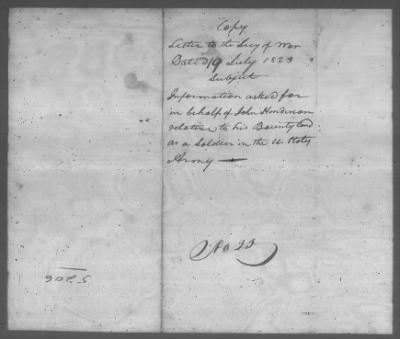 Copy
Letter to the Secy of War
Dated 19 July 1823
Subject
Information asked for
in behalf of John
relative to his Bounty Land
as a Soldier in the U States
Army —
No 23